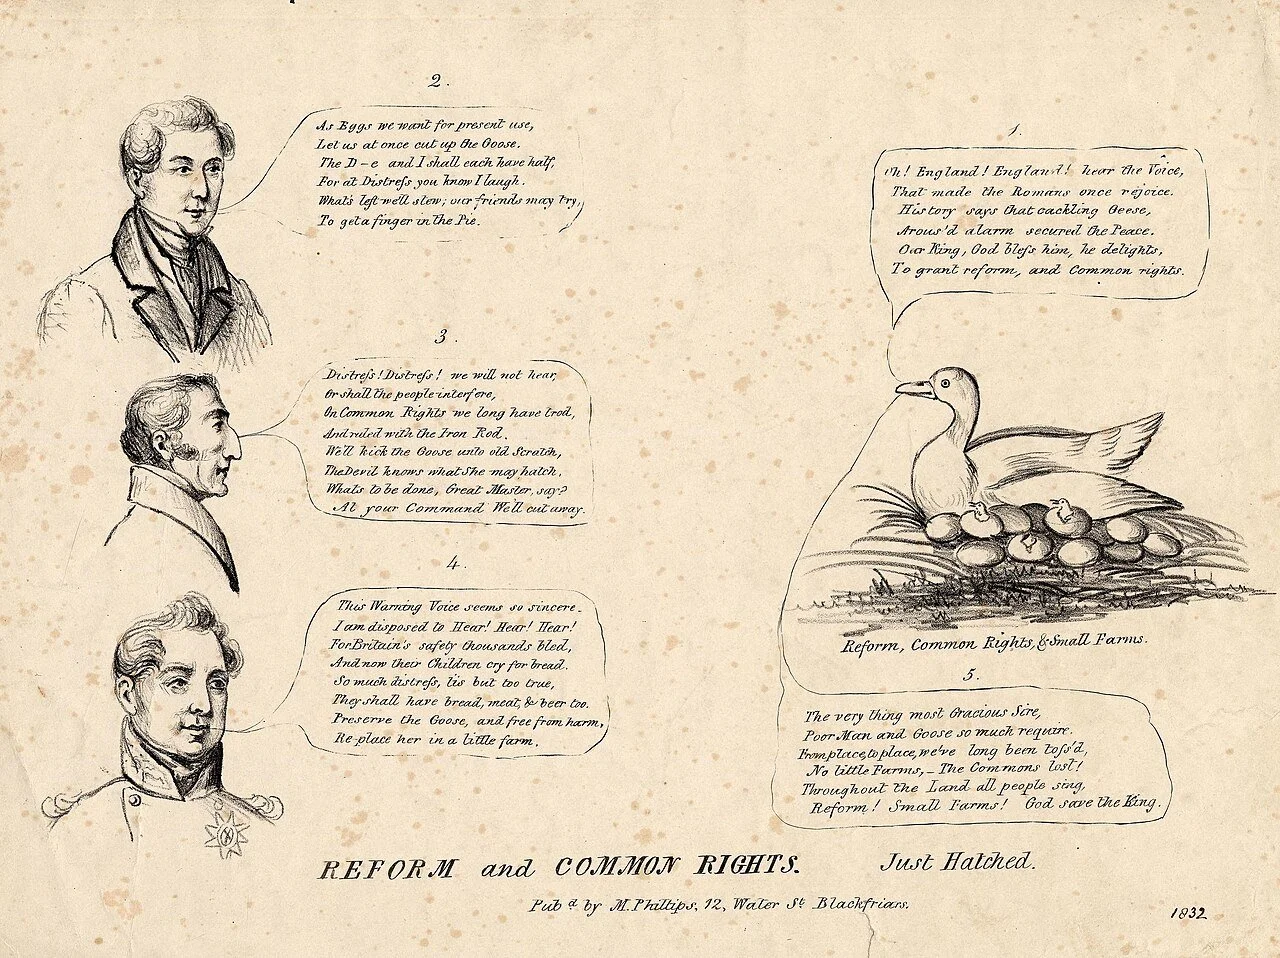 1.
Oh! England! England! hear the Voice,
That made the Romans once rejoice.
History says that cackling Geese,
Arous'd alarm secured the Peace.
Our King, God bleſs him, he delights,
To grant reform, and Common rights.
2.
As Eggs we want for present use,
Let us at once cut up the Goose.
The D-e and I shall each have half,
For at Distreſs you know I laugh.
What's left we'll stew; our friends may try,
To get a finger in the Pie.
3.
Distreſs! Distreſs! we will not hear,
Or shall the people interfere,
On Common Rights we long have trod,
And ruled with the Iron Rod.
We'll kick the Goose unto old Scratch,
The Devil knows what She may hatch.
Whats to be done, Great Master, say?
At your Command We'll cut away.
4.
This Warning Voice seems so sincere.
I am disposed to Hear! Hear! Hear!
For Britain's safety thousands bled,
And now their Children cry for bread.
So much distreſs, tis but too true,
They shall have bread, meat, & beer too.
Preserve the Goose, and free from harm,
Re-place her in a little farm.
Reform, Common Rights, & Small Farms.
5.
The very thing most Gracious Sire,
Poor Man and Goose so much require.
From place, to place, we've long been toſs'd,
No little Farms,- The Commons lost!
Throughout the Land all people sing,
Reform! Small Farms! God save the King.
REFORM and COMMON RIGHTS. Just Hatched.
Pubd by M. Phillips, 12, Water St Blackfriars.
1832